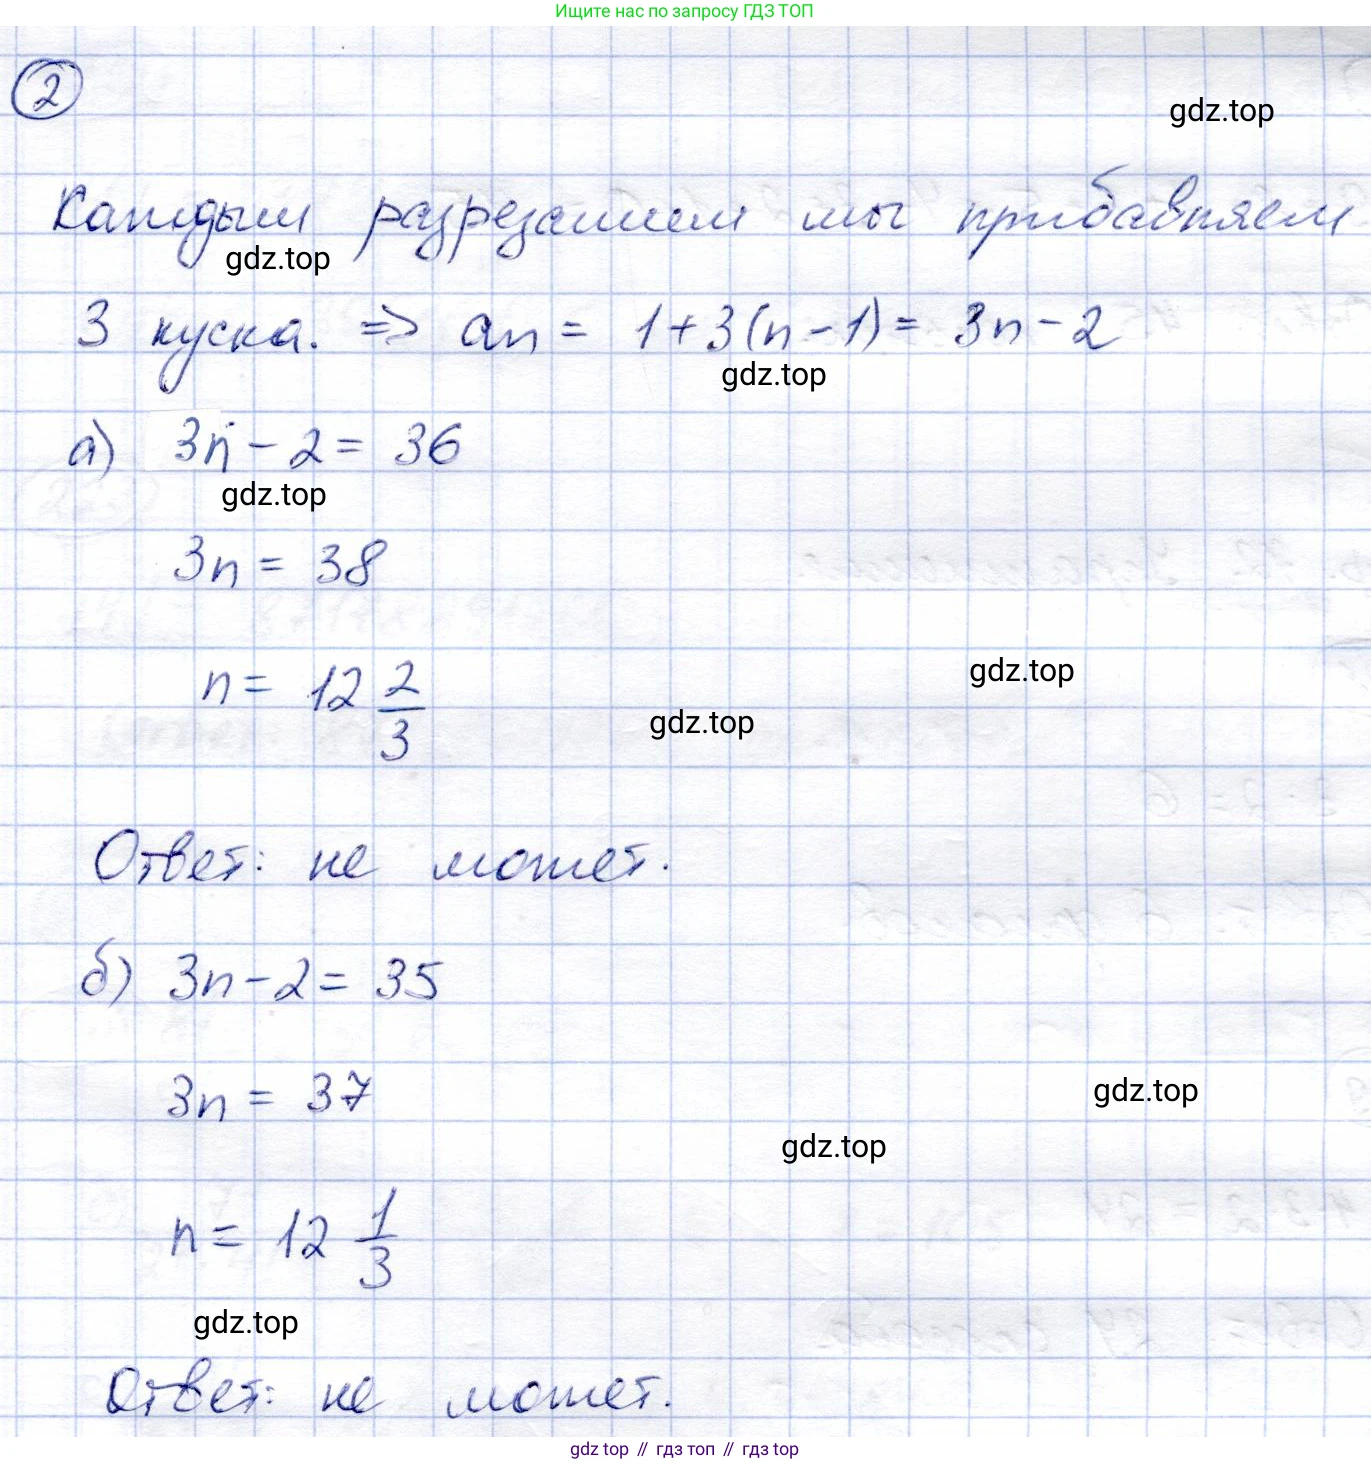 Ищите нас по запросу ГДЗ ТОП
2
gdz.top
Каждым разрезанием мы прибавляем
gdz.top
3 куска. => an = 1+3(n-1) = 3n-2
gdz.top
а) 3n-2 = 36
gdz.top
3n = 38
n = 12 2/3
gdz.top
gdz.top
Ответ: не может.
б) 3n-2 = 35
3n = 37
gdz.top
gdz.top
n = 12 1/3
gdz.top
Ответ: не может.
gdz top // гдз топ // гдз top